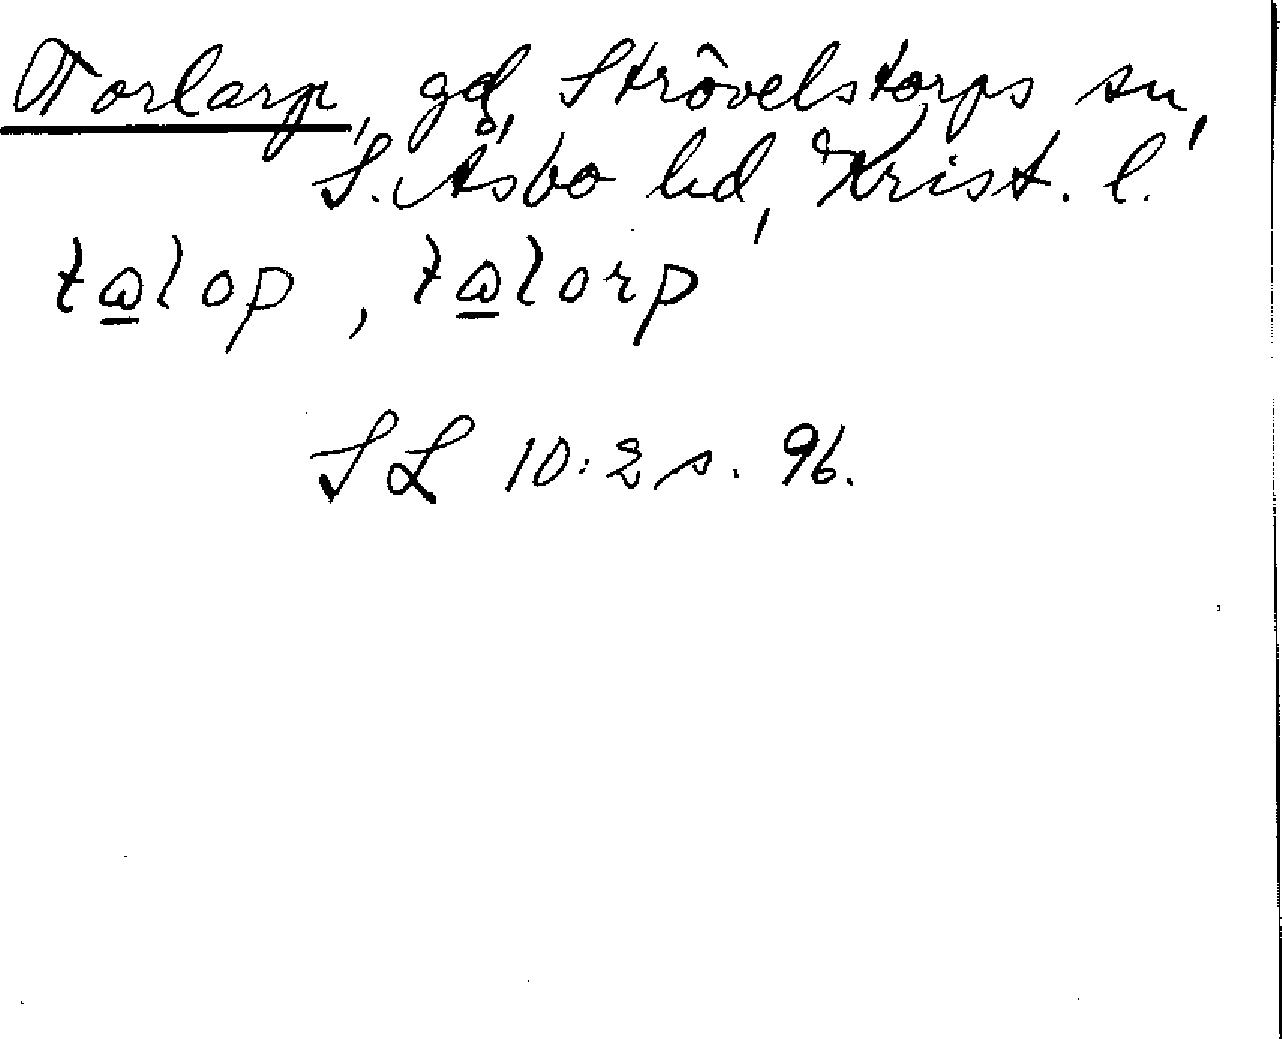 Torlarp, gd, Strövelstorps sn,
S. Åsbo hd, Krist. l.
tαlop, tαlorp
SL 10:2 s. 96.